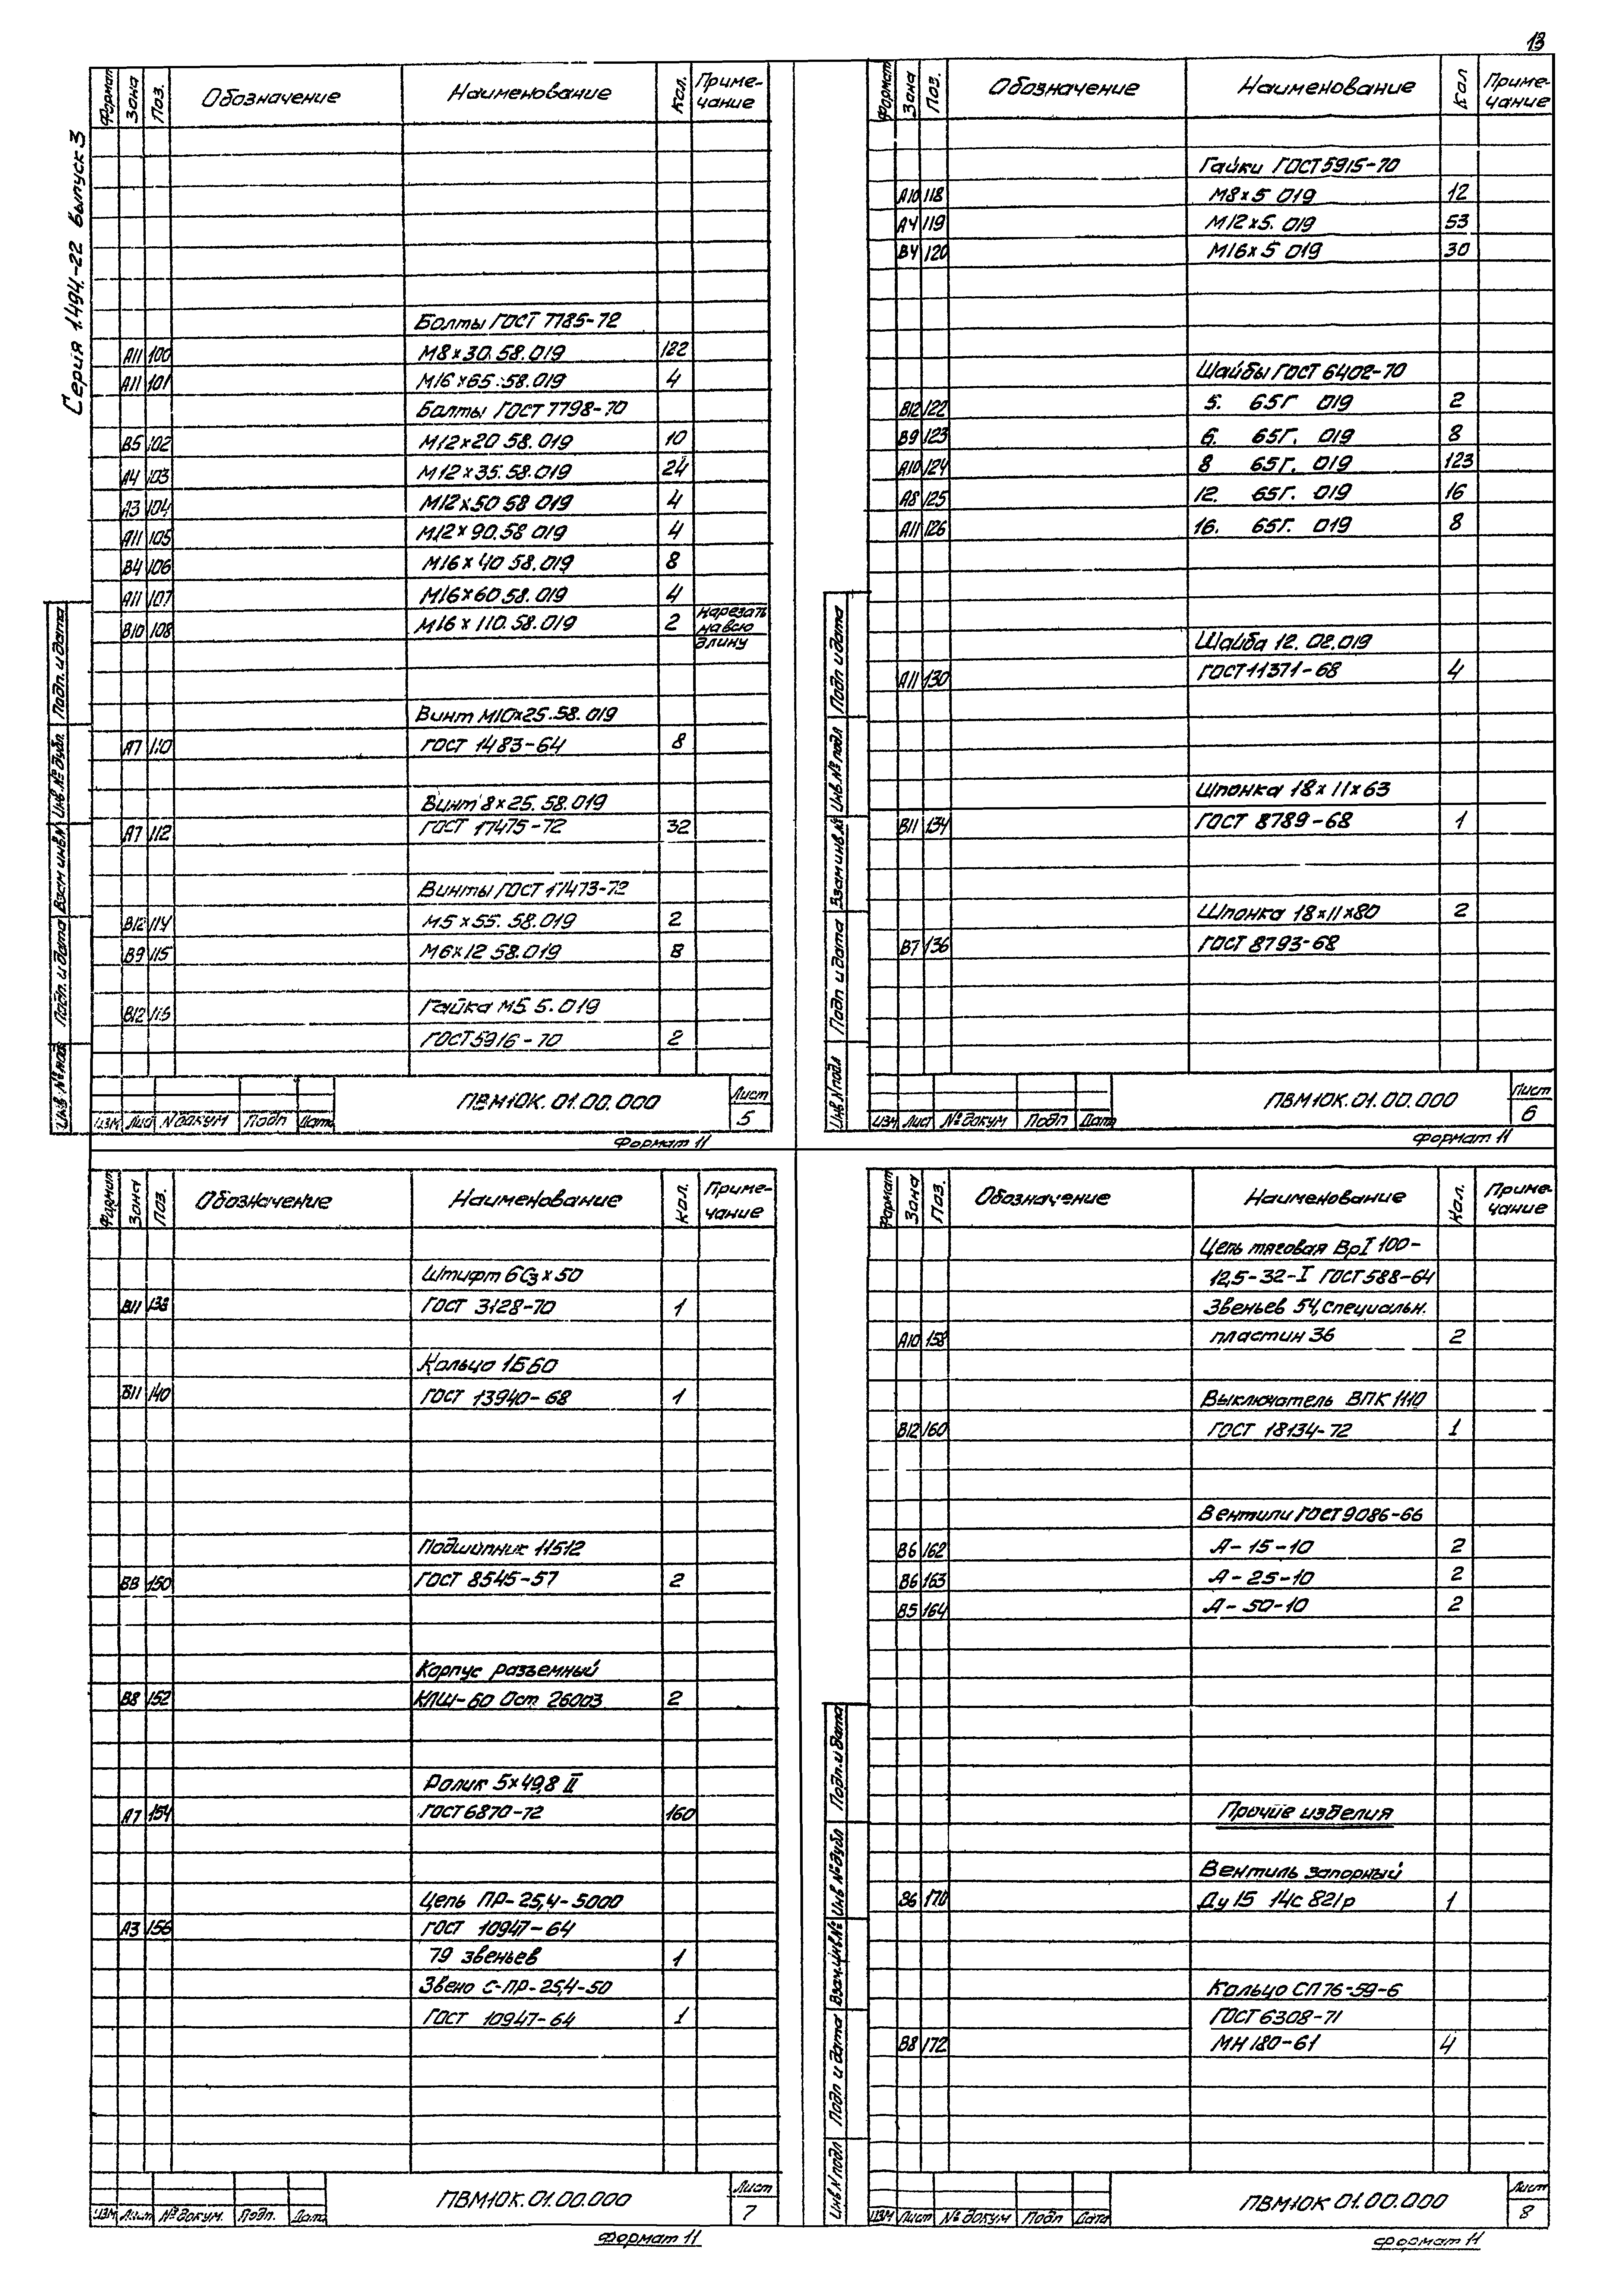 13
Серия 1.494-22 выпуск 3
Формат Зона Поз. Обозначение Наименование Кол. Приме-
чание
Болты ГОСТ 7785-72
А11 100 М8×30.58.019 122
А11 101 М16×65.58.019 4
Болты ГОСТ 7798-70
В5 102 М12×20 58.019 10
А4 103 М12×35.58.019 24
А3 104 М12×50 58 019 4
А11 105 М12×90.58 019 4
В4 106 М16×40 58.019 8
А11 107 М16×60.58.019 4
В10 108 М16×110.58.019 2 нарезать
на всю
длину
Винт М10×25.58.019
А7 110 ГОСТ 1483-64 8
Винт 8×25.58.019
А7 112 ГОСТ 17475-72 32
Винты ГОСТ 17473-72
В12 114 М5×55.58.019 2
В9 115 М6×12 58.019 8
В12 116 Гайка М5 5.019
ГОСТ 5916-70 2
Инв.№ подл Подп. и дата Взам инв.№ Инв.№ дубл. Подп. и дата
ПВМ10К.01.00.000 Лист
Изм Лис № докум Подп Дата 5
Формат 11
Формат Зона Поз. Обозначение Наименование Кол Приме-
чание
Гайки ГОСТ 5915-70
А10 118 М8×5 019 12
А4 119 М12×5.019 53
В4 120 М16×5 019 30
Шайбы ГОСТ 6402-70
В12 122 5. 65Г 019 2
В9 123 6. 65Г. 019 8
А10 124 8 65Г. 019 123
А8 125 12. 65Г. 019 16
А11 126 16. 65Г. 019 8
Шайба 12.02.019
А11 130 ГОСТ 11371-68 4
Шпонка 18×11×63
В11 134 ГОСТ 8789-68 1
Шпонка 18×11×80 2
В7 136 ГОСТ 8793-68
Инв.№ подл Подп и дата Взам инв.№ Инв.№ подл Подп и дата
ПВМ10К.01.00.000 Лист
Изм Лист № докум Подп Дата 6
Формат 11
Формат Зона Поз. Обозначение Наименование Кол. Приме-
чание
Штифт 6С3×50
В11 138 ГОСТ 3128-70 1
Кольцо 1Б60
В11 140 ГОСТ 13940-68 1
Подшипник 11512
В8 150 ГОСТ 8545-57 2
Корпус разъемный
В8 152 КПШ-60 Ост 26003 2
Ролик 5×49,8 II
А7 154 ГОСТ 6870-72 160
Цепь ПР-25,4-5000
А3 156 ГОСТ 10947-64
79 звеньев 1
Звено С-ПР-25,4-50
ГОСТ 10947-64 1
ПВМ10К.01.00.000 Лист
Изм Лист № докум. Подп. Дата 7
Формат 11
Формат Зона Поз. Обозначение Наименование Кол. Приме-
чание
Цепь тяговая ВрI 100-
12,5-32-I ГОСТ 588-64
Звеньев 54, специальн.
А10 158 пластин 36 2
Выключатель ВПК 1110
В12 160 ГОСТ 18134-72 1
Вентили ГОСТ 9086-66
В6 162 А-15-10 2
В6 163 А-25-10 2
В5 164 А-50-10 2
Прочие изделия
Вентиль запорный
В6 170 Ду 15 14с 821р 1
Кольцо СП 76-59-6
ГОСТ 6308-71
В8 172 МН 180-61 4
Инв.№ подл Подп и дата Взам.инв.№ Инв.№ дубл Подп. и дата
ПВМ10К 01.00.000 Лист
Изм Лист № докум Подп Дата 8
Формат 11